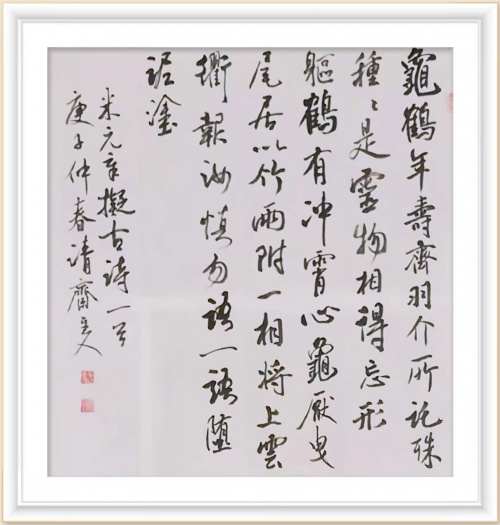 龜鶴年壽齊羽介所託殊
種〻是靈物相得忘形
軀鶴有冲霄心龜厭曳
尾居以竹兩附一相將上雲
衢報汝慎勿語一語墮
泥塗
米元章擬古詩一首
庚子仲春清齋主人